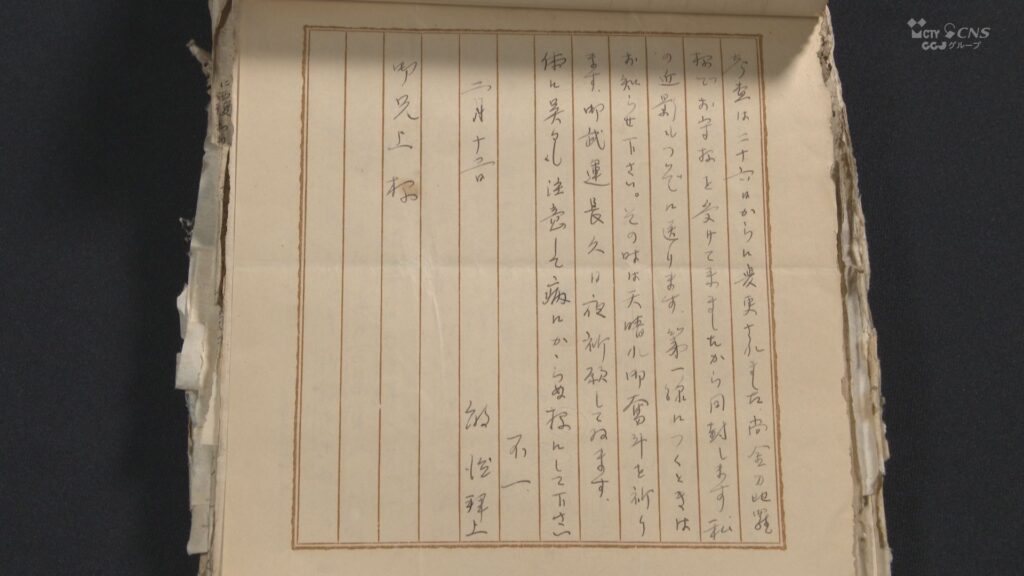 考査は二十六日からに変更されました 尚金刀比羅
様でお守を受けてきましたから同封します 私
の近影もついでに送ります、第一線につくときは
お知らせ下さい。その時は天晴れ御奮斗を祈り
ます、御武運長久日夜祈願してゐます、
体に呉々も注意して病にかゝらぬ様にして下さい
不一
二月十
拝上
御兄上様
CTY CNS
CCJグループ